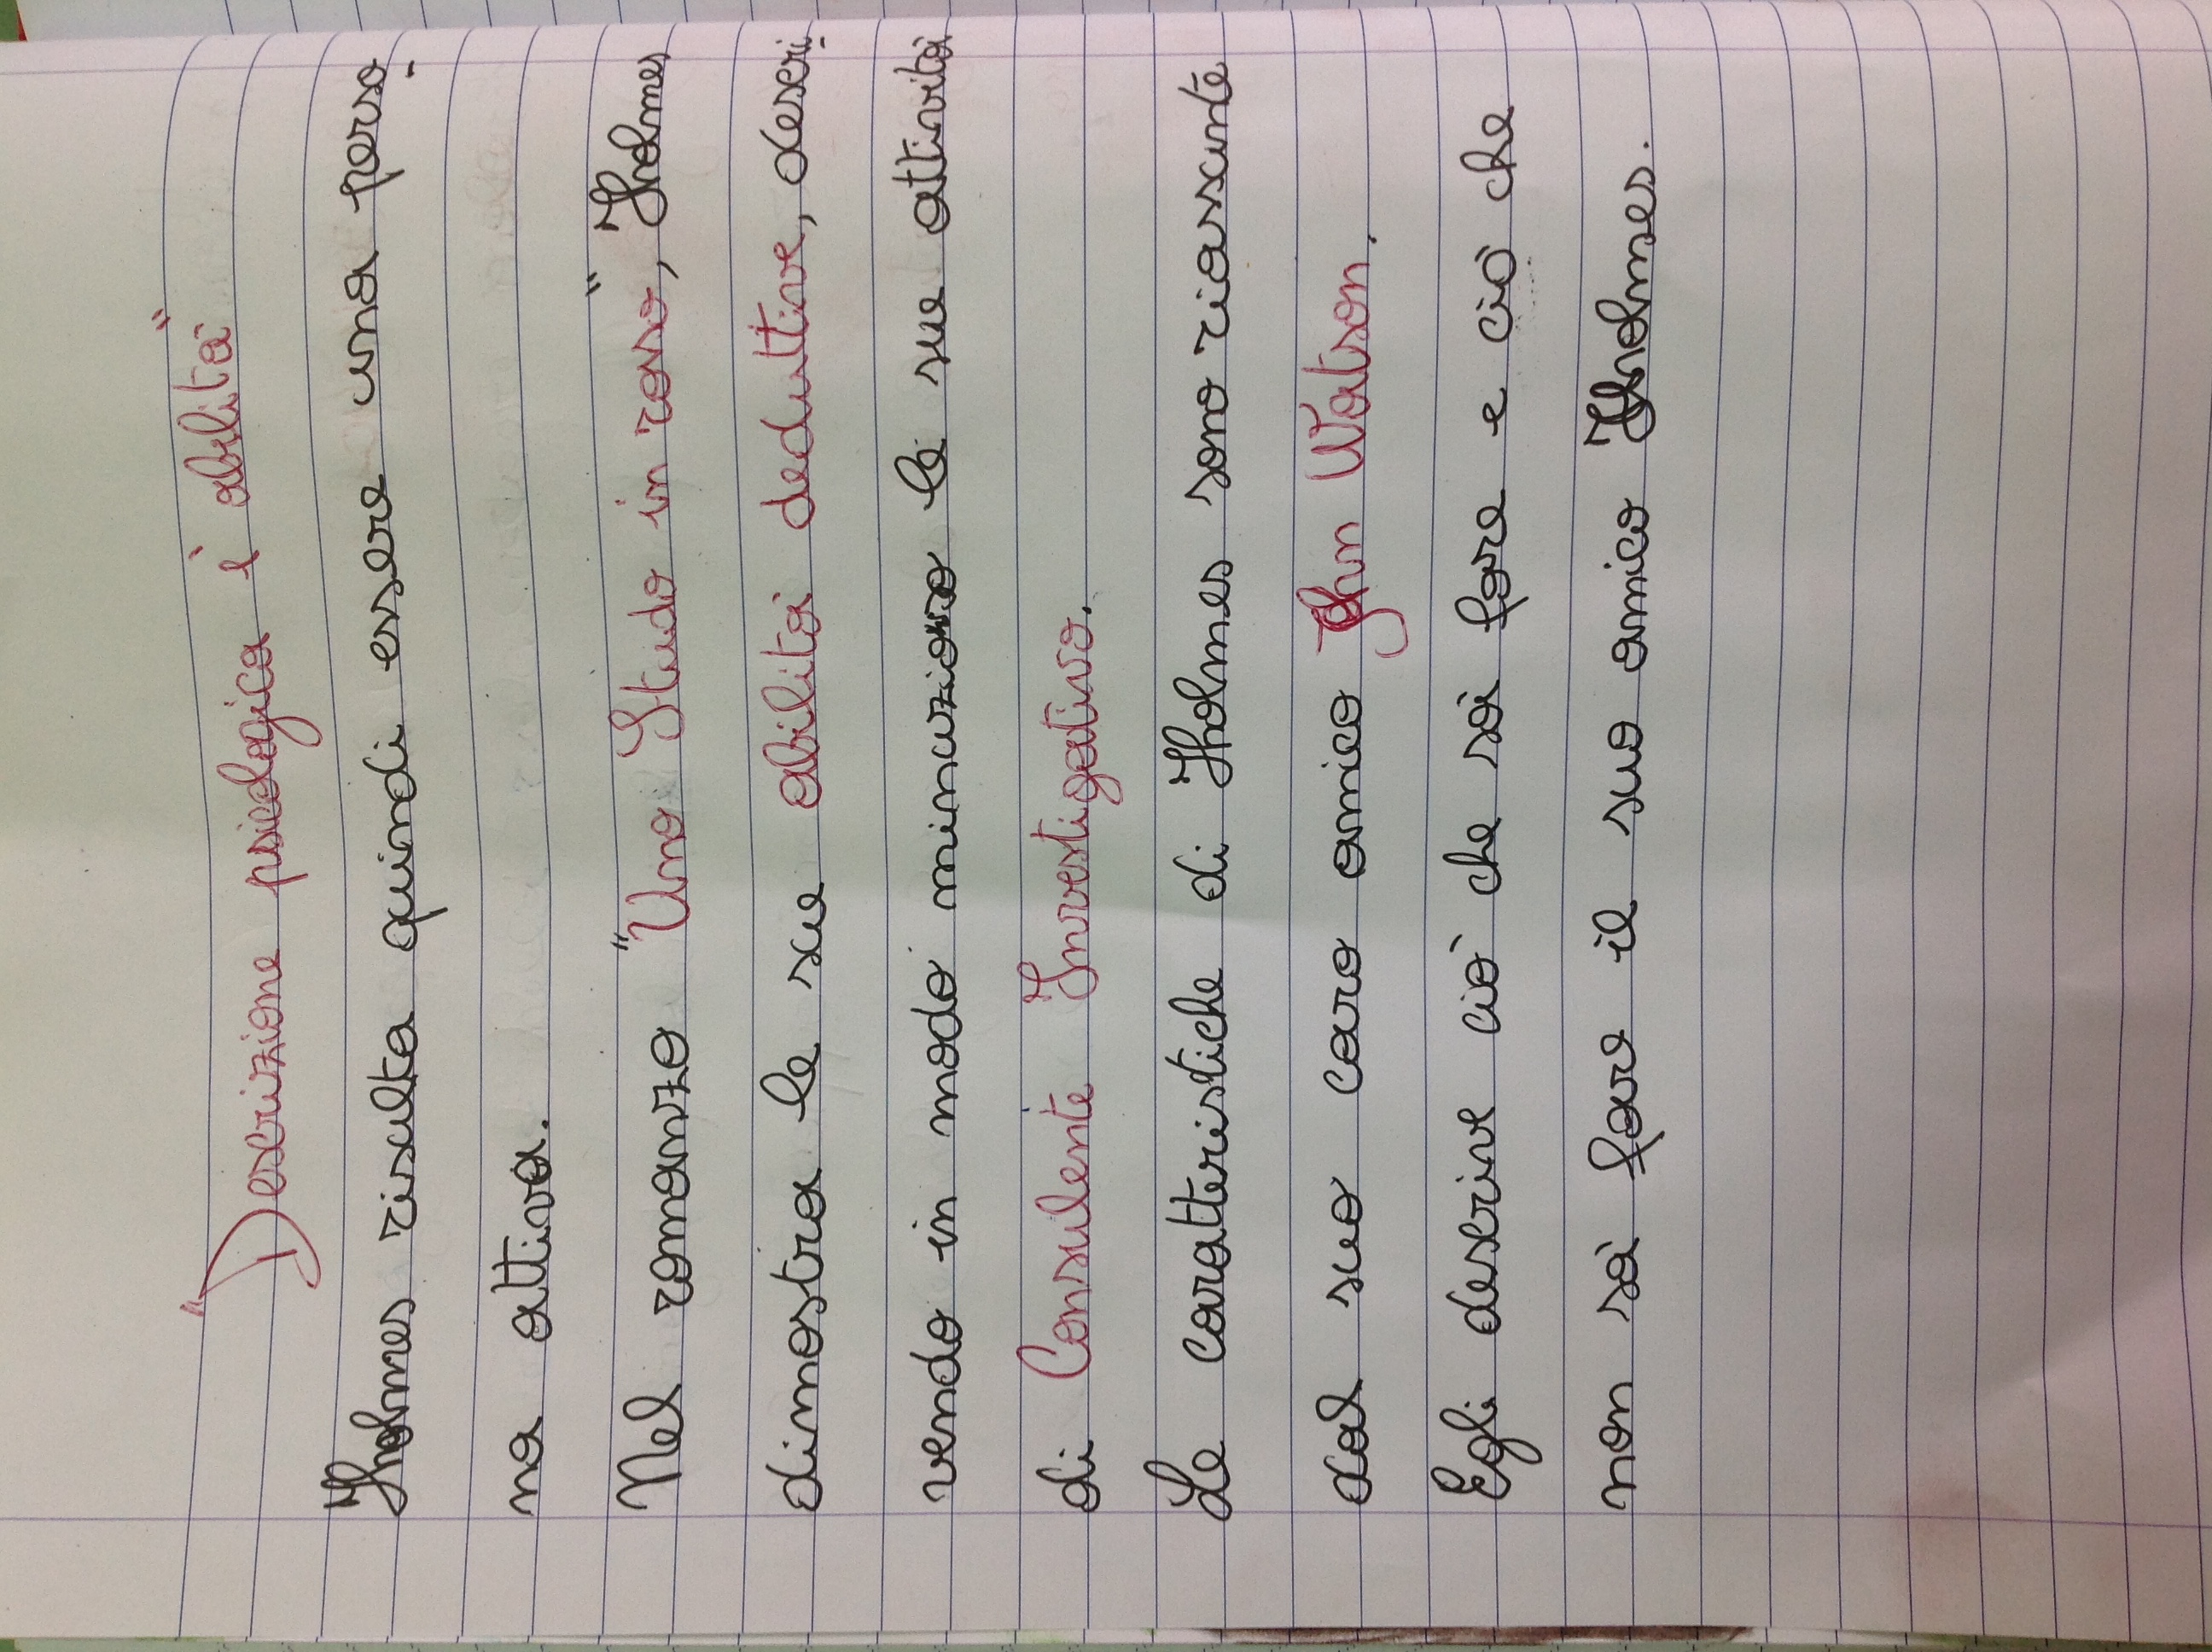 "Descrizione psicologica è abilità"
Hholmes risulta quindi essere una perso-
na attiva.
Nel romanzo "Uno Studio in rosso", Hholmes
dimostra le sue abilità deduttive, descri-
vendo in modo minuzioso le sue attività
di Consulente Investigativo.
Le caratteristiche di Hholmes sono riassunte
dal suo caro amico Jhon Watson.
Egli descrive ciò che sà fare e ciò che
non sà fare il suo amico Hholmses.